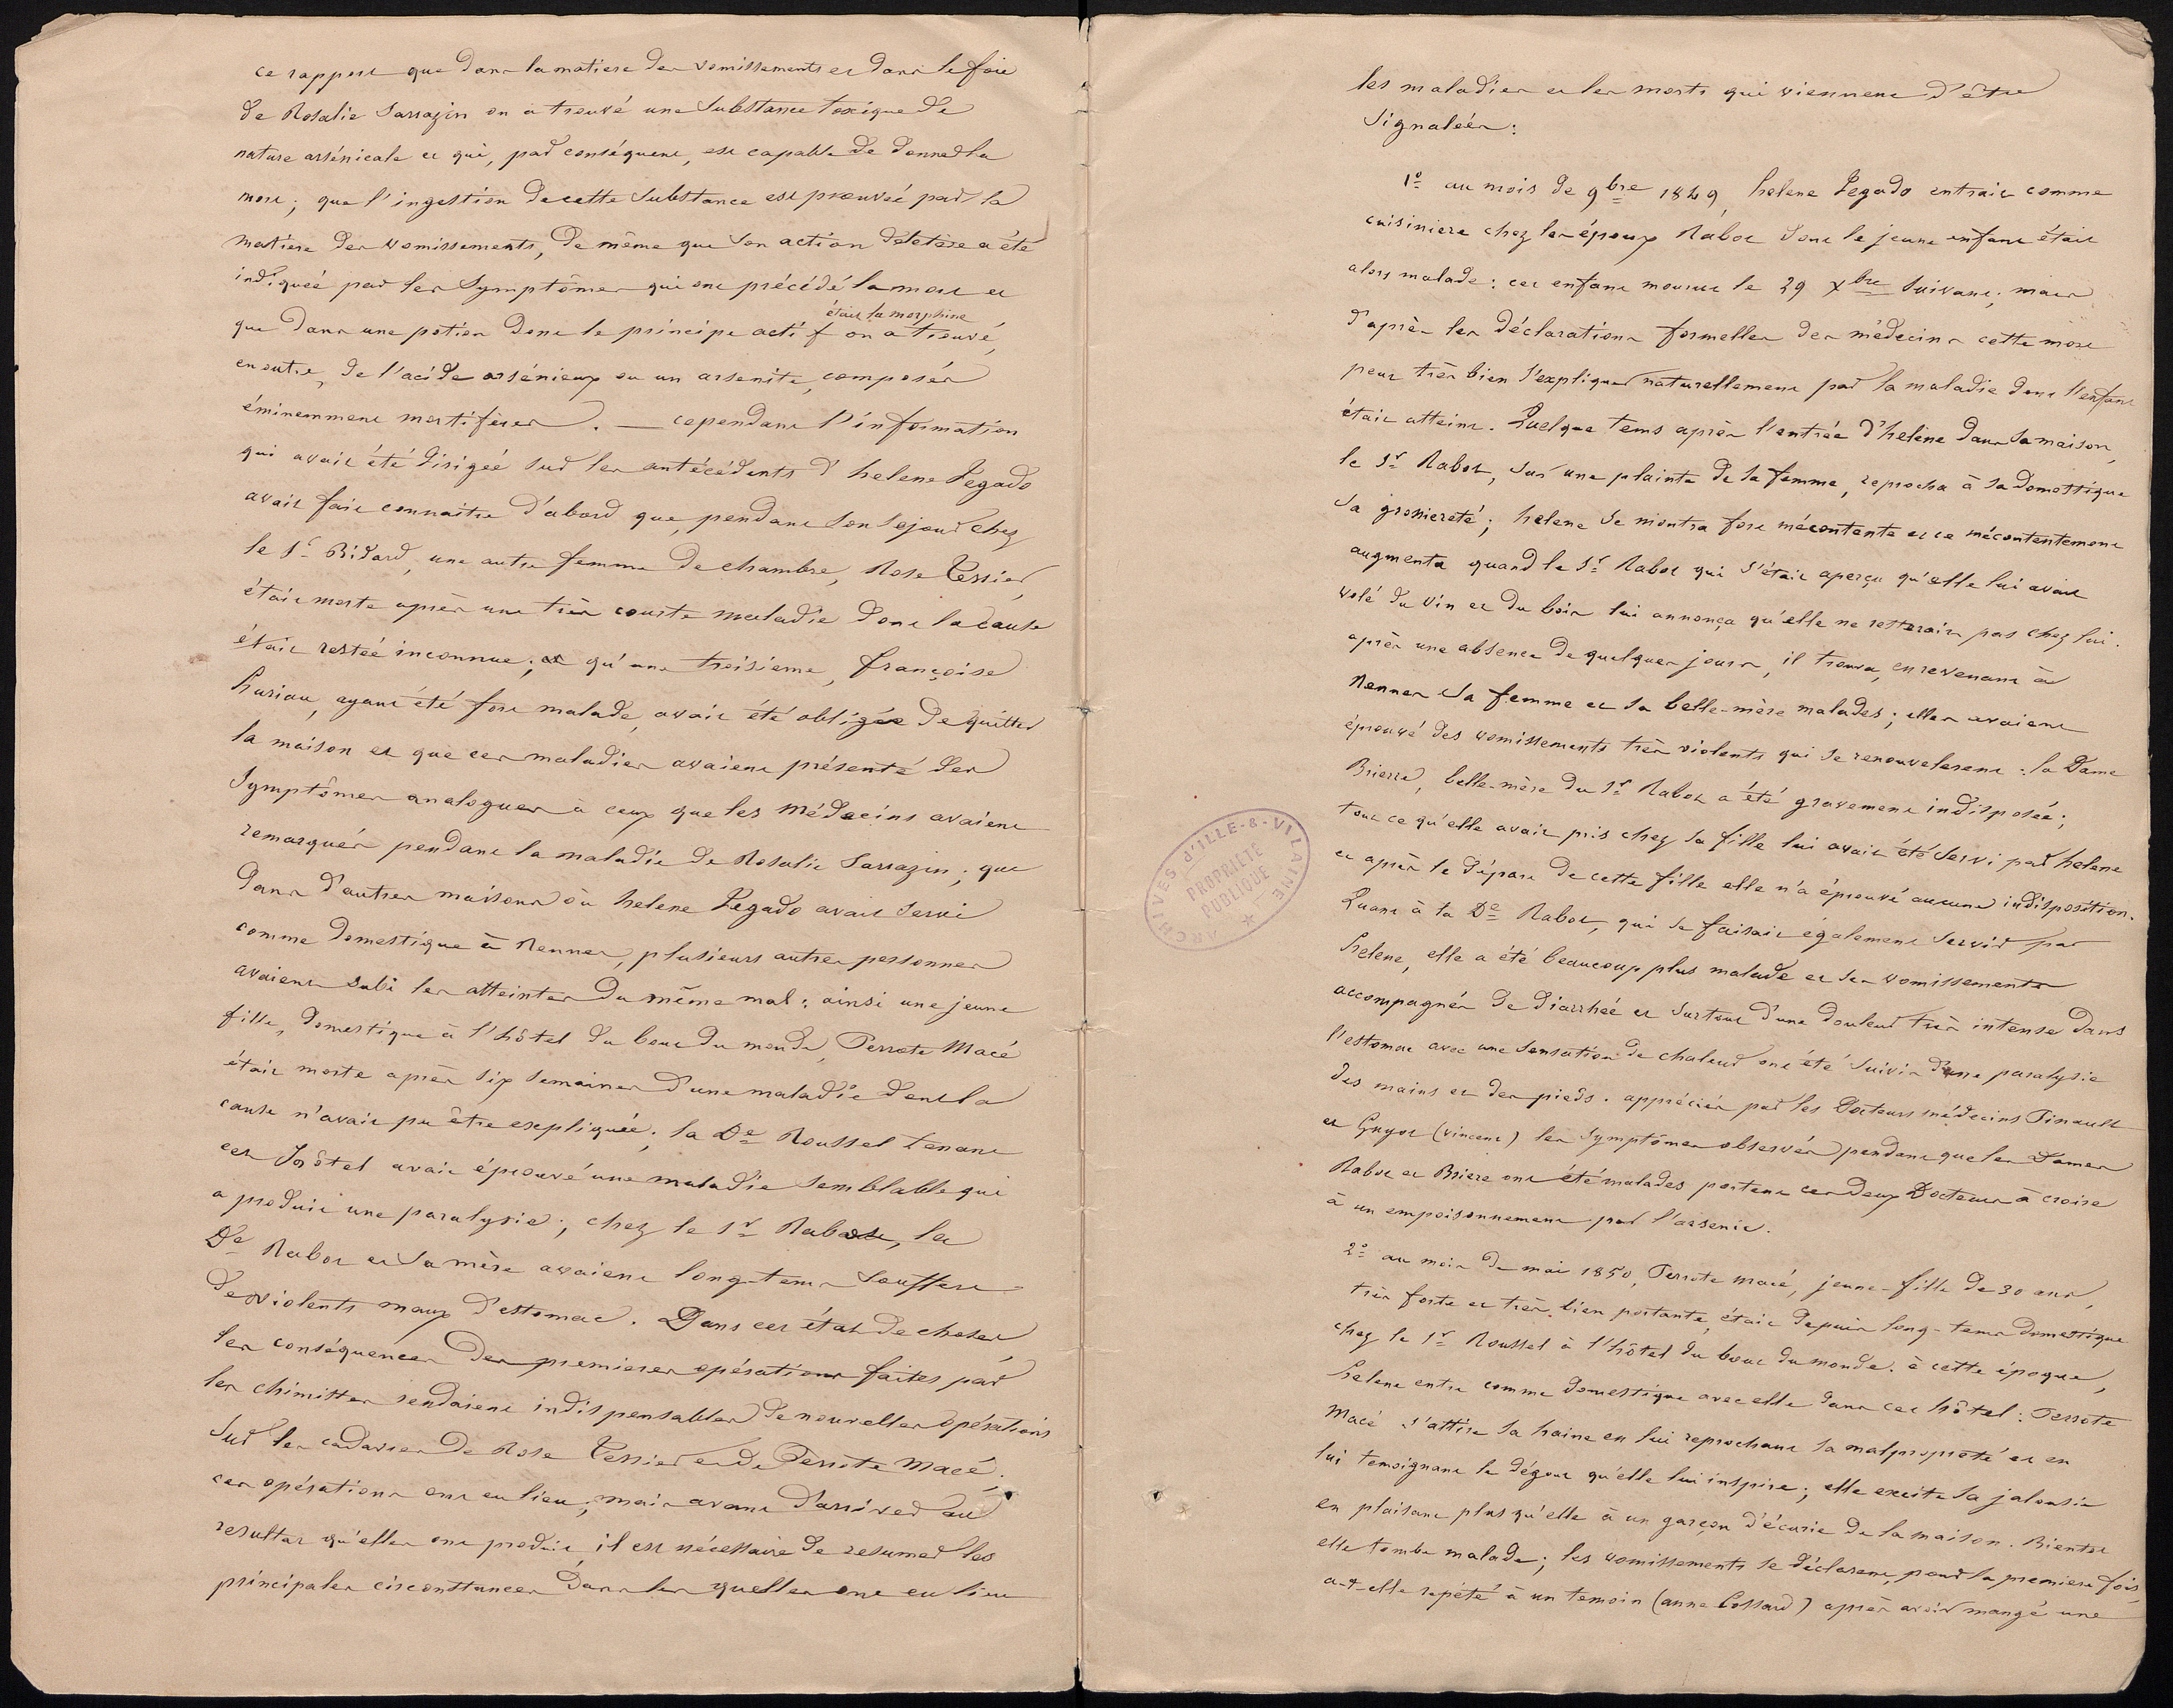 ce rapport que dans la matiere des vomissements et dans le foie
de Rosalie Sarrazin on a trouvé une substance toxique de
nature arsénicale et qui, par conséquent, est capable de donner la
mort; que l'ingestion de cette substance est prouvée par la
matiere des vomissements, de même que son action délétère a été
indiquée par les symptômes qui ont précédé la mort et
était la morphine
que dans une potion dont le principe actif on a trouvé,
en outre, de l'acide arsénieux ou un arsenite, composés
éminemment mortifères. — cependant l'information
qui avait été dirigée sur les antécédents d'helene Jegado
avait fait connaitre d'abord que, pendant son sejour chez
le Sr Bidard, une autre femme de chambre, Rose Tessier,
était morte après une très courte maladie dont la cause
était restée inconnue; qu'une troisieme, françoise
huriau, ayant été fort malade, avait été obligée de quitter
la maison et que ces maladies avaient présenté des
symptômes analogues à ceux que les médecins avaient
remarqués pendant la maladie de Rosalie Sarrazin; que
dans d'autres maisons où helene Jegado avait servi
comme domestique à Rennes, plusieurs autres personnes
avaient subi les atteintes du même mal: ainsi une jeune
fille, domestique à l'hôtel du bout du monde, Perrote Macé
était morte après six semaines d'une maladie dont la
cause n'avait pu être expliquée; la De Roussel tenant
cet hôtel avait éprouvé une maladie semblable qui
a produit une paralysie; chez le Sr Rabot, la
De Rabot et sa mère avaient long-tems souffert
de violents maux d'estomac. Dans cet état de choses,
les conséquences des premieres opérations faites par
les chimistes rendaient indispensables de nouvelles opérations
sur les cadavres de Rose Tessier et de Perrote Macé.
ces opérations ont eu lieu; mais avant d'arriver au
resultat qu'elles ont produit, il est nécessaire de resumer les
principales circonstances dans les quelles ont eu lieu
les maladies et les morts qui viennent d'être
signalées:
1º au mois de 9bre 1849, helene Jegado entrait comme
cuisiniere chez les époux Rabot dont le jeune enfant était
alors malade: cet enfant mourut le 29 Xbre suivant; mais
d'après les déclarations formelles des médecins cette mort
peut très bien s'expliquer naturellement par la maladie dont l'enfant
était atteint. Quelque tems après l'entrée d'helène dans sa maison,
le Sr Rabot, sur une plainte de sa femme, reprocha à sa domestique
sa grossiereté; helene se montra fort mécontente et ce mécontentement
augmenta quand le Sr Rabot qui s'était aperçu qu'elle lui avait
volé du vin et du bois lui annonça qu'elle ne resterait pas chez lui.
après une absence de quelques jours, il trouva, en revenant à
Rennes sa femme et sa belle-mère malades; elles avaient
éprouvé des vomissements très violents qui se renouvelerent: la Dame
Brierre, belle-mère du Sr Rabot a été gravement indisposée;
tout ce qu'elle avait pris chez sa fille lui avait été servi par helene
et après le départ de cette fille elle n'a éprouvé aucune indisposition.
Quant à la De Rabot, qui se faisait également servir par
helene, elle a été beaucoup plus malade et ses vomissements
accompagnés de diarrhée et surtout d'une douleur très intense dans
l'estomac avec une sensation de chaleur ont été suivis d'une paralysie
des mains et des pieds. appréciés par les Docteurs médecins Pinault
et Guyot (vincent) les symptômes observés pendant que les Dames
Rabot et Briere ont été malades portent ces deux Docteurs à croire
à un empoisonnement par l'arsenic.
2º au mois de mai 1850, Perrote Macé, jeune-fille de 30 ans,
très forte et très bien portante, était depuis long-tems domestique
chez le Sr Roussel à l'hôtel du bout du monde. à cette époque,
helene entre comme domestique avec elle dans cet hôtel: Perrote
Macé s'attire sa haine en lui reprochant sa malpropreté et en
lui temoignant le dégout qu'elle lui inspire; elle excite sa jalousie
en plaisant plus qu'elle à un garçon d'écurie de la maison. Bientot
elle tombe malade; les vomissements se déclarent, pour la premiere fois,
a-t-elle repété à un temoin (anne Cossard) après avoir mangé une
ARCHIVES D'ILLE-&-VILAINE
PROPRIÉTÉ
PUBLIQUE